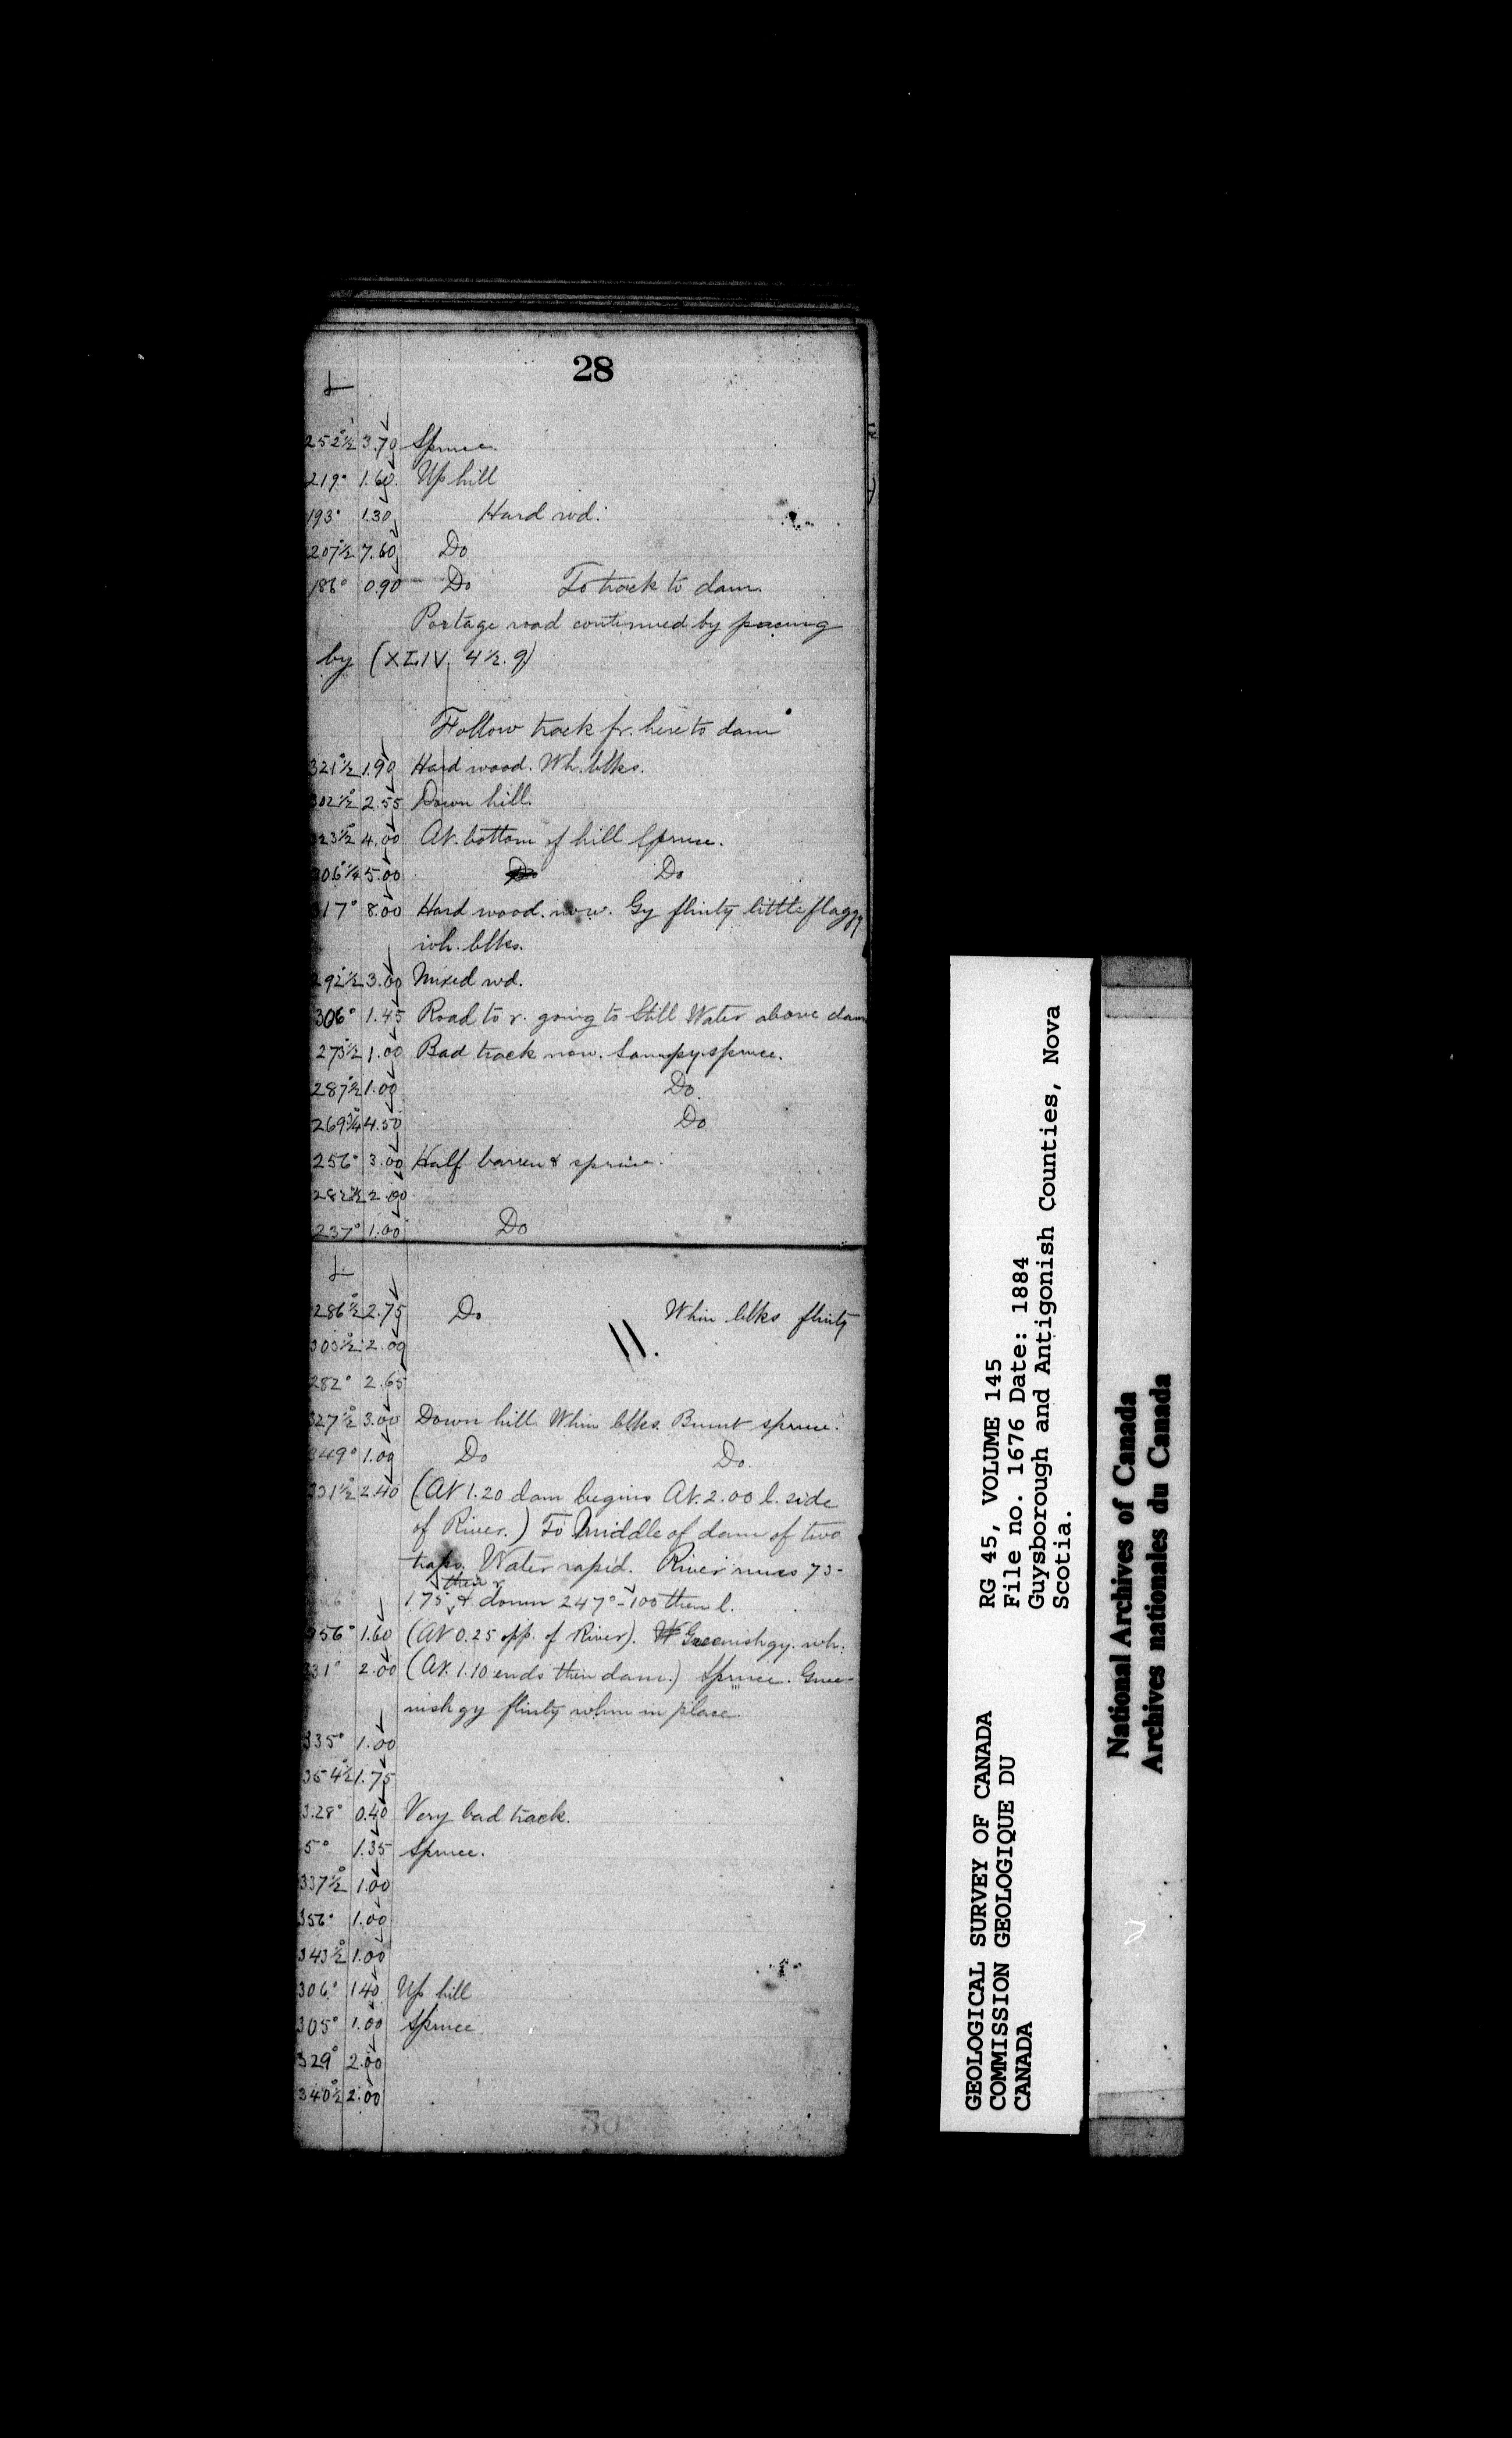 28
252½° 3.70 Spruce.
219° 1.60. Up hill
193° 1.30 Hard wd.
207½° 7.60 Do
186° 0.90 Do To track to dam.
Portage road continued by pacing
by (XLIV. 4½. 9)
Follow track fr. here to dam
321½° 1.90 Hard wood. Wh. blks.
302½° 2.55 Down hill.
323½° 4.00 At bottom of hill Spruce.
306¼° 5.00 Do Do
317° 8.00 Hard wood. now. Gy flinty little flaggy
wh. blks.
292½° 3.00 Mixed wd.
306° 1.45 Road to r. going to Still Water above dam
273½° 1.00 Bad track now. Swampy spruce.
287½° 1.00 Do.
269¾° 4.50 Do
256° 3.00 Half barren & spruce.
282½° 2.00
237° 1.00 Do
286½° 2.75 Do Whin blks flinty
11.
303½° 2.00
282° 2.65
327½° 3.00 Down hill Whin blks. Burnt spruce.
349° 1.00 Do Do.
331½° 2.40 (At 1.20 dam begins At. 2.00 l. side
of River.) To Middle of dam of two
traps. Water rapid. River runs 73-
then r
175 & down 247°-100 then l.
356° 1.60 (At 0.25 opp. of River). Greenish gy. wh.
331° 2.00 (At. 1.10 ends then dam.) Spruce. Gree-
nish gy flinty whin in place.
335° 1.00
354½° 1.75
328° 0.40 Very bad track.
5° 1.35 Spruce.
337½° 1.00
356° 1.00
343½° 1.00
306° 1.40 Up hill
305° 1.00 Spruce
329° 2.00
340½° 2.00
30
GEOLOGICAL SURVEY OF CANADA
COMMISSION GEOLOGIQUE DU
CANADA
RG 45, VOLUME 145
File no. 1676 Date: 1884
Guysborough and Antigonish Counties, Nova
Scotia.
National Archives of Canada
Archives nationales du Canada